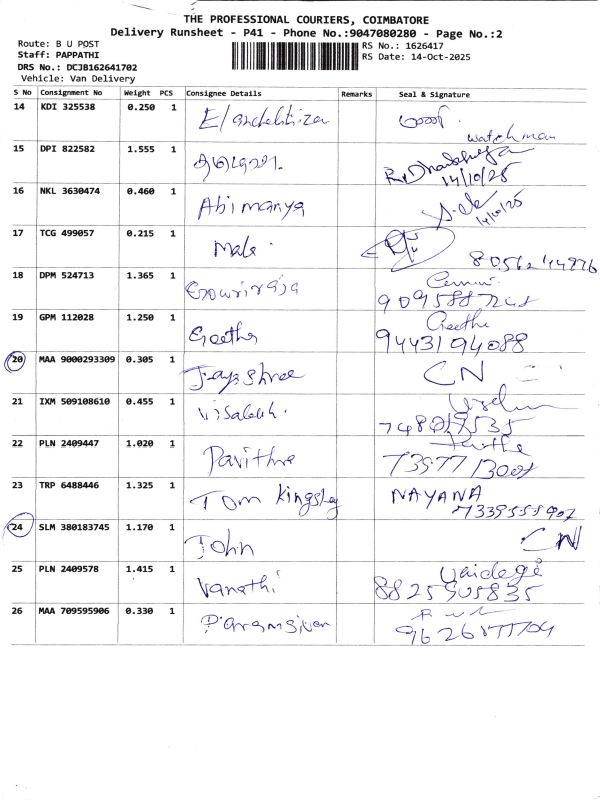 THE PROFESSIONAL COURIERS, COIMBATORE
Delivery Runsheet - P41 - Phone No.:9047080280 - Page No.:2
Route: B U POST
RS No.: 1626417
Staff: PAPPATHI
RS Date: 14-Oct-2025
DRS No.: DCJB162641702
Vehicle: Van Delivery
S No Consignment No Weight PCS Consignee Details Remarks Seal & Signature
14 KDI 325538 0.250 1
watchman
15 DPI 822582 1.555 1
14/10/25
16 NKL 3630474 0.460 1 Abimanya
14/10/25
17 TCG 499057 0.215 1 Mala
18 DPM 524713 1.365 1 Gowriraja
19 GPM 112028 1.250 1 Geetha Geetha
9443194088
20 MAA 9000293309 0.305 1 Jayashree CN
21 IXM 509108610 0.455 1
22 PLN 2409447 1.020 1 Pavithra
23 TRP 6488446 1.325 1 Tom Kingsley NAYANA
24 SLM 380183745 1.170 1 John CN
25 PLN 2409578 1.415 1 Vanathi
8825905835
26 MAA 709595906 0.330 1 Paramsivan